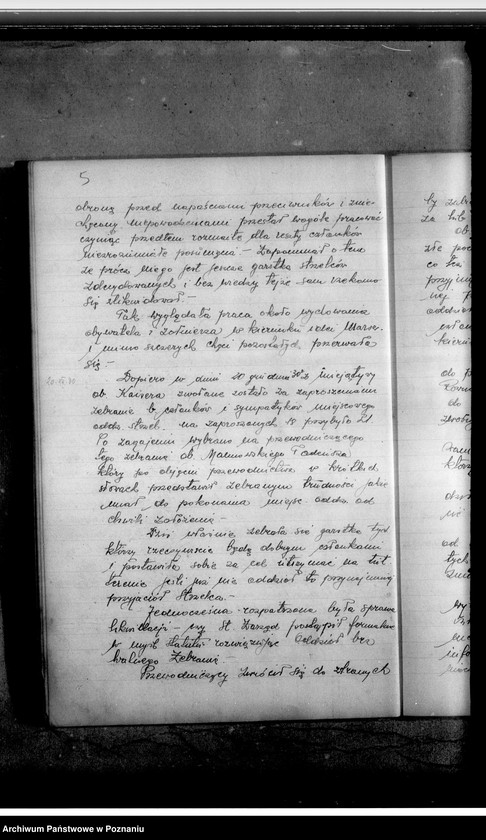 5
obroną przed napaściami przeciwników i znie-
chęcony niepowodzeniami przestał wogóle pracować
czyniąc przedtem rozmaite dla reszty członków
niezrozumiałe posunięcia. – Zapomniał o tem
że prócz niego jest jeszcze garstka strzelców
zdecydowanych i bez wiedzy tejże sam rzekomo
się zlikwidował. –
Tak wyglądała praca około wychowania
obywatela i żołnierza w kierunku idei Marsz.
i mimo szczerych chęci pozostałych przerwała
się. –
Dopiero w dniu 20 grudnia 30 z inicjatywy
ob Kaisera zwołane zostało za zaproszeniami
zebranie b. członków i sympatyków miejscowego
oddz. Strzel. na zaproszonych przybyło 21
Po zagajeniu wybrano na przewodniczącego
tego zebrania ob. Malinowskiego Tadeusza
który po objęciu przewodnictwa w krótkich
słowach przedstawił zebranym trudności jakie
miał do pokonania miejsc. oddz. od
chwili założenia –
Dziś właśnie zebrała się garstka tych
którzy rzeczywiście będą dobrymi członkami
i postawiła sobie za cel utrzymać na tut.
terenie jeśli już nie oddział to przynajmniej
przyjaciół Strzelca. –
Jednocześnie rozpatrzona była sprawa
likwidacji – czy St. Zarząd postąpił formalnie
w myśl statutu rozwiązując Oddział bez
walnego Zebrania –
Przewodniczący zwrócił się do zebranych
Archiwum Państwowe w Poznaniu